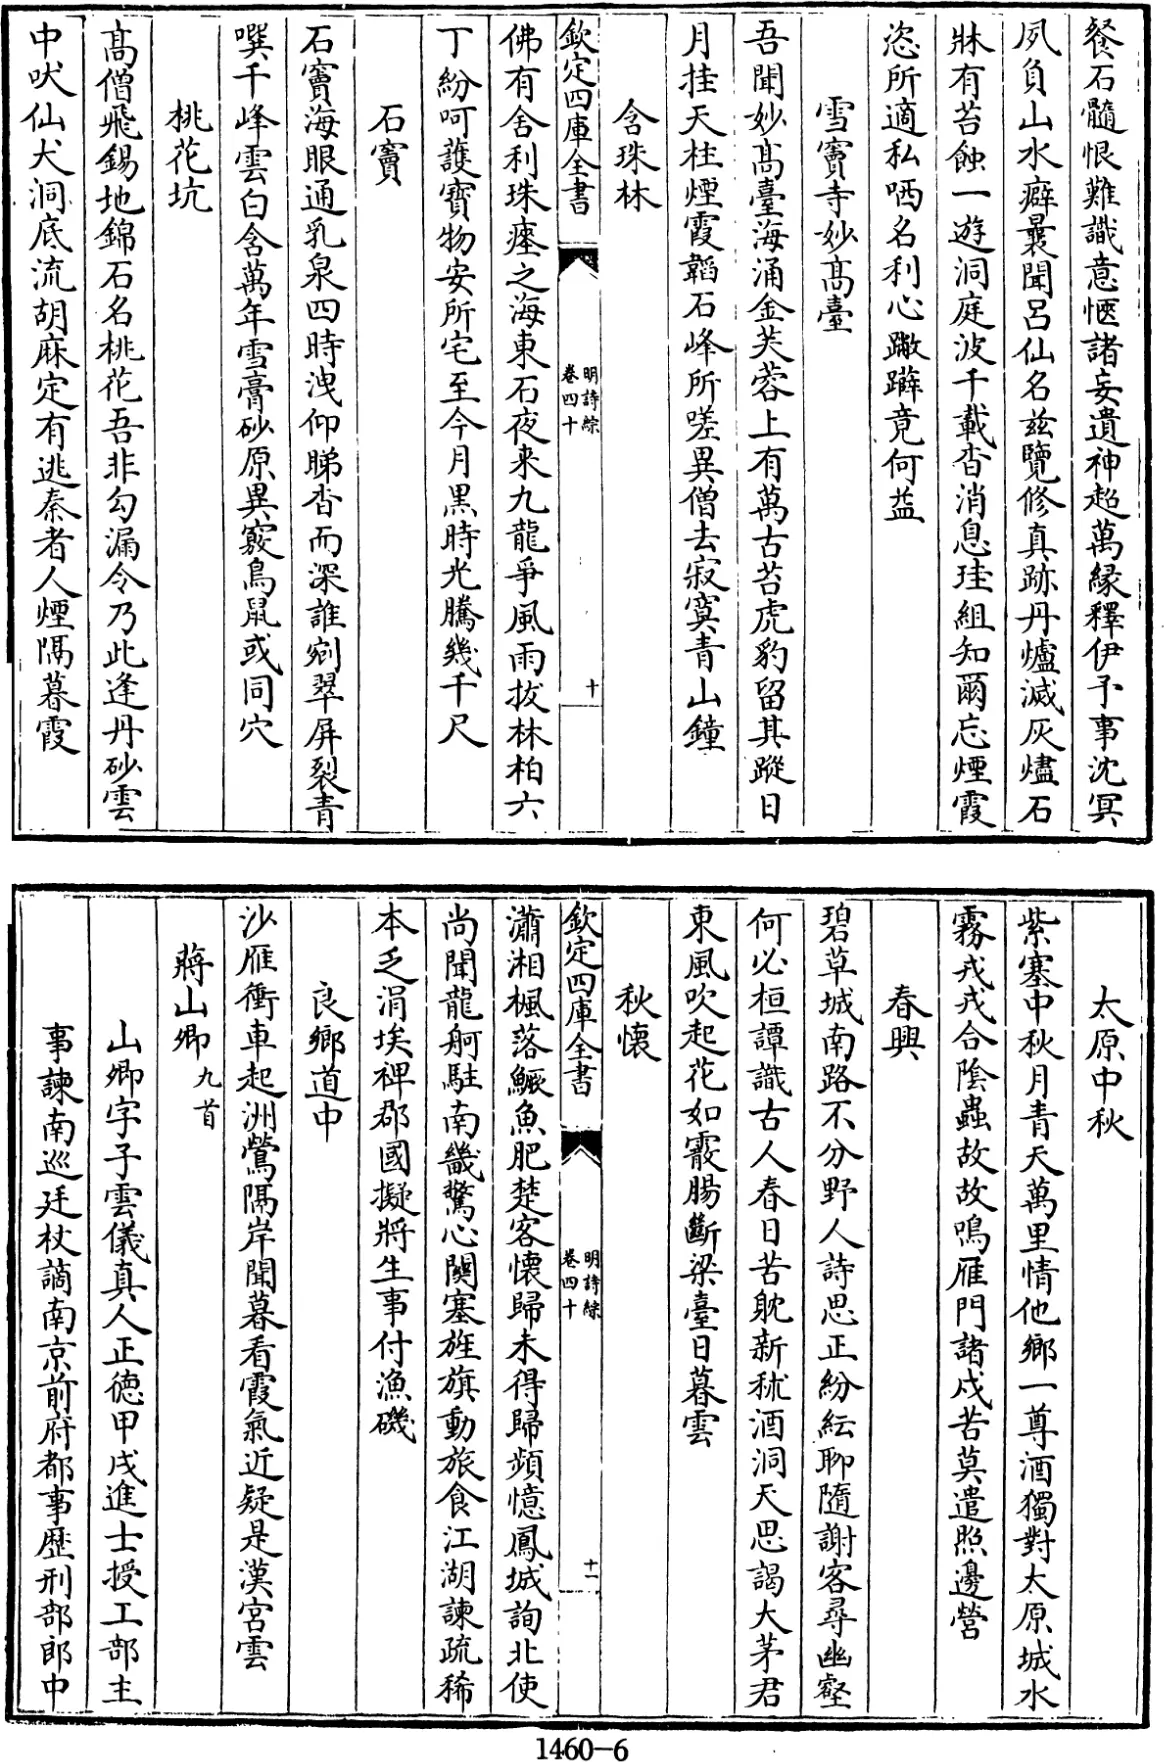 餐石髓恨難識意愜諸妄遺神超萬緣釋伊予事沈冥
夙負山水癖曩聞呂仙名兹覽修真跡丹爐滅灰燼石
牀有苔蝕一遊洞庭波千載杳消息珪組知爾忘煙霞
恣所適私哂名利心躐躋竟何益
雪竇寺妙髙臺
吾聞妙髙臺海涌金芙蓉上有萬古苔虎豹留其蹤日
月挂天柱煙霞韜石峰所嗟異僧去寂寞青山鐘
含珠林
欽定四庫全書
明詩綜
卷四十
十
佛有舍利珠瘞之海東石夜来九龍爭風雨拔林柏六
丁紛呵護寳物安所宅至今月黒時光騰幾千尺
石竇
石竇海眼通乳泉四時洩仰睇杳而深誰剜翠屏裂青
噀千峰雲白含萬年雪膏砂原異竅鳥鼠或同穴
桃花坑
髙僧飛錫地錦石名桃花吾非勾漏令乃此逢丹砂雲
中吠仙犬洞底流胡麻定有逃秦者人煙隔暮霞
太原中秋
紫塞中秋月青天萬里情他鄉一尊酒獨對太原城水
霧戎戎合陰蟲故故鳴雁門諸戍苦莫遣照邊營
春興
碧草城南路不分野人詩思正紛紜聊隨謝客尋幽壑
何必桓譚識古人春日苦躭新秫酒洞天思謁大茅君
東風吹起花如霰腸斷梁臺日暮雲
秋懐
欽定四庫全書
明詩綜
卷四十
十一
瀟湘楓落鱖魚肥楚客懐歸未得歸頻憶鳳城詢北使
尚聞龍舸駐南畿驚心闗塞旌旗動旅食江湖諫疏稀
本乏涓埃裨郡國擬將生事付漁磯
良鄉道中
沙雁衝車起洲鶯隔岸聞暮看霞氣近疑是漢宮雲
蔣山卿九首
山卿字子雲儀真人正徳甲戌進士授工部主
事諫南巡廷杖謫南京前府都事歴刑部郎中
1460-6